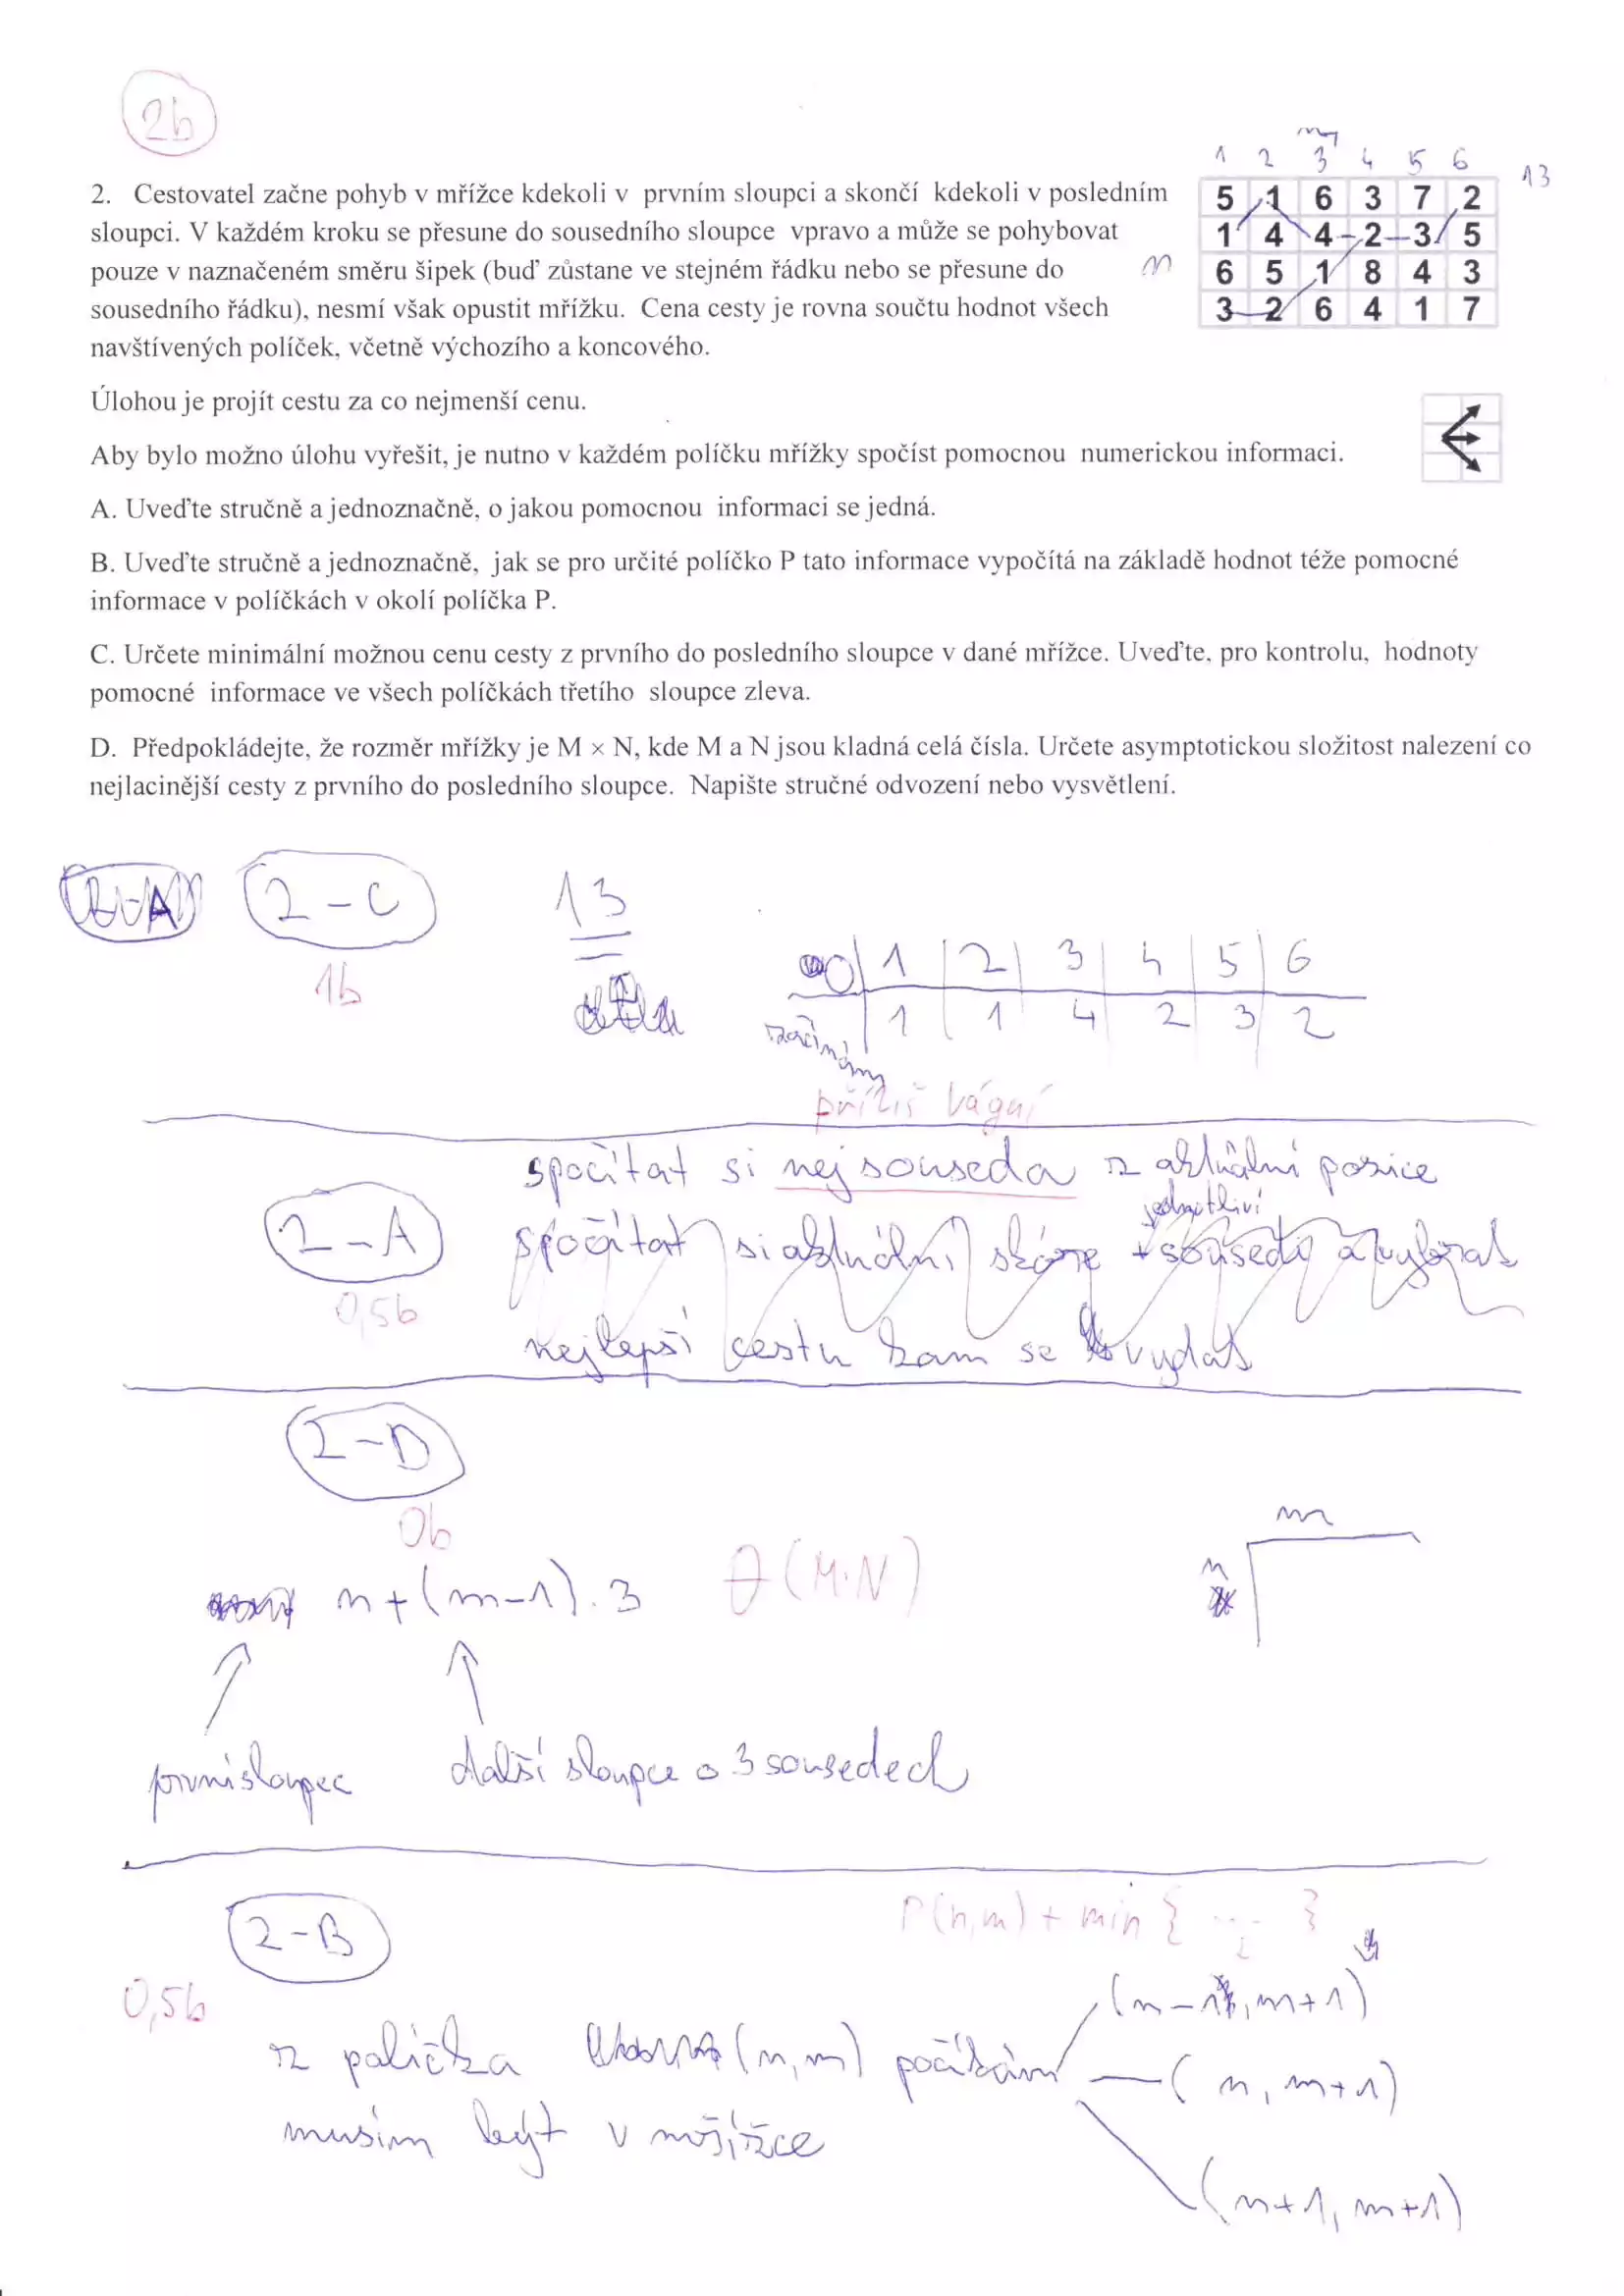 2b
1 2 3 4 5 6
13
m
n
2. Cestovatel začne pohyb v mřížce kdekoli v prvním sloupci a skončí kdekoli v posledním
sloupci. V každém kroku se přesune do sousedního sloupce vpravo a může se pohybovat
pouze v naznačeném směru šipek (buď zůstane ve stejném řádku nebo se přesune do
sousedního řádku), nesmí však opustit mřížku. Cena cesty je rovna součtu hodnot všech
navštívených políček, včetně výchozího a koncového.
5 1 6 3 7 2
1 4 4 2 3 5
6 5 1 8 4 3
3 2 6 4 1 7
Úlohou je projít cestu za co nejmenší cenu.
Aby bylo možno úlohu vyřešit, je nutno v každém políčku mřížky spočíst pomocnou numerickou informaci.
A. Uveďte stručně a jednoznačně, o jakou pomocnou informaci se jedná.
B. Uveďte stručně a jednoznačně, jak se pro určité políčko P tato informace vypočítá na základě hodnot téže pomocné
informace v políčkách v okolí políčka P.
C. Určete minimální možnou cenu cesty z prvního do posledního sloupce v dané mřížce. Uveďte, pro kontrolu, hodnoty
pomocné informace ve všech políčkách třetího sloupce zleva.
D. Předpokládejte, že rozměr mřížky je M × N, kde M a N jsou kladná celá čísla. Určete asymptotickou složitost nalezení co
nejlacinější cesty z prvního do posledního sloupce. Napište stručné odvození nebo vysvětlení.
2-A
2-C
13
1b
0 1 2 3 4 5 6
začínám 1 1 4 2 3 2
příliš vágní
spočítat si nej souseda z aktuální pozice
2-A
jednotliví
spočítat si aktuální skóre + sousedi a vybrat
0,5b
nejlepší cestu kam se vydat
2-D
0b
n+(m-1).3
θ(M·N)
m
n
první sloupec
další sloupce o 3 sousedech
2-B
P(n,m) + min { ... }
0,5b
z políčka (n,m) počítám
(n-1, m+1)
(n, m+1)
(n+1, m+1)
musím být v mřížce